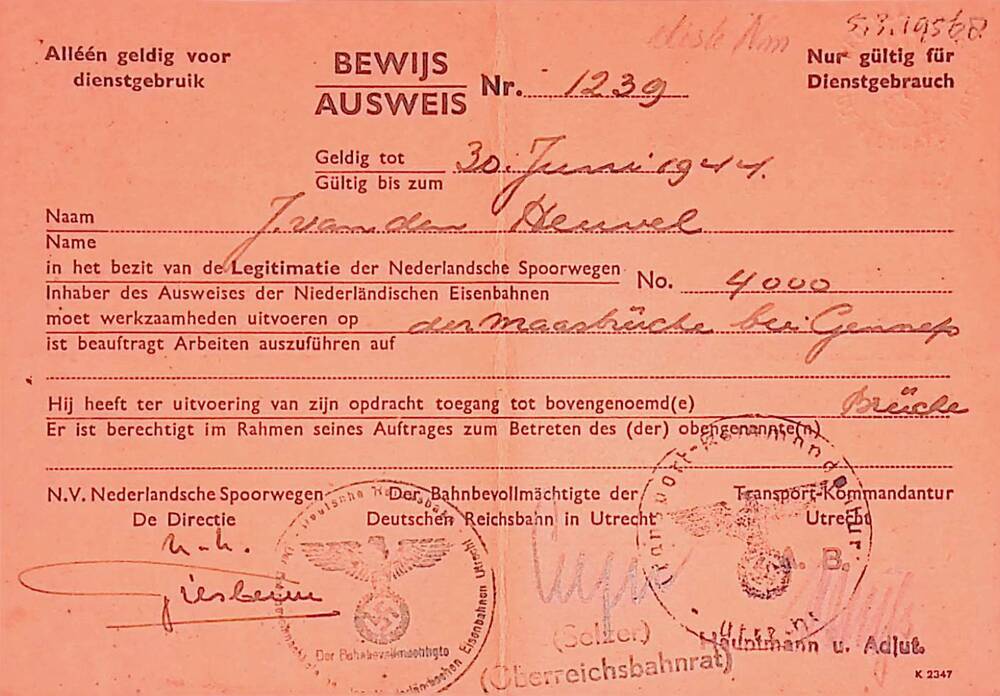 5.3.1956
Alléén geldig voor
dienstgebruik
BEWIJS
AUSWEIS
Nr. 1239
Nur gültig für
Dienstgebrauch
Geldig tot
Gültig bis zum
30. Juni 1944.
Naam
Name
J. van den Heuvel
in het bezit van de Legitimatie der Nederlandsche Spoorwegen
Inhaber des Ausweises der Niederländischen Eisenbahnen
No. 4000
moet werkzaamheden uitvoeren op
ist beauftragt Arbeiten auszuführen auf
der Maasbrücke bei Gennep
Hij heeft ter uitvoering van zijn opdracht toegang tot bovengenoemd(e) Brücke
Er ist berechtigt im Rahmen seines Auftrages zum Betreten des (der) obengenannte(n)
N.V. Nederlandsche Spoorwegen
De Directie
Der Bahnbevollmächtigte der
Deutschen Reichsbahn in Utrecht
Transport-Kommandantur
Utrecht
Deutsche Reichsbahn
Der Bahnbevollmächtigte
Transport-Kommandantur
A. B.
(Selzer)
(Oberreichsbahnrat)
Hauptmann u. Adjut.
K 2347